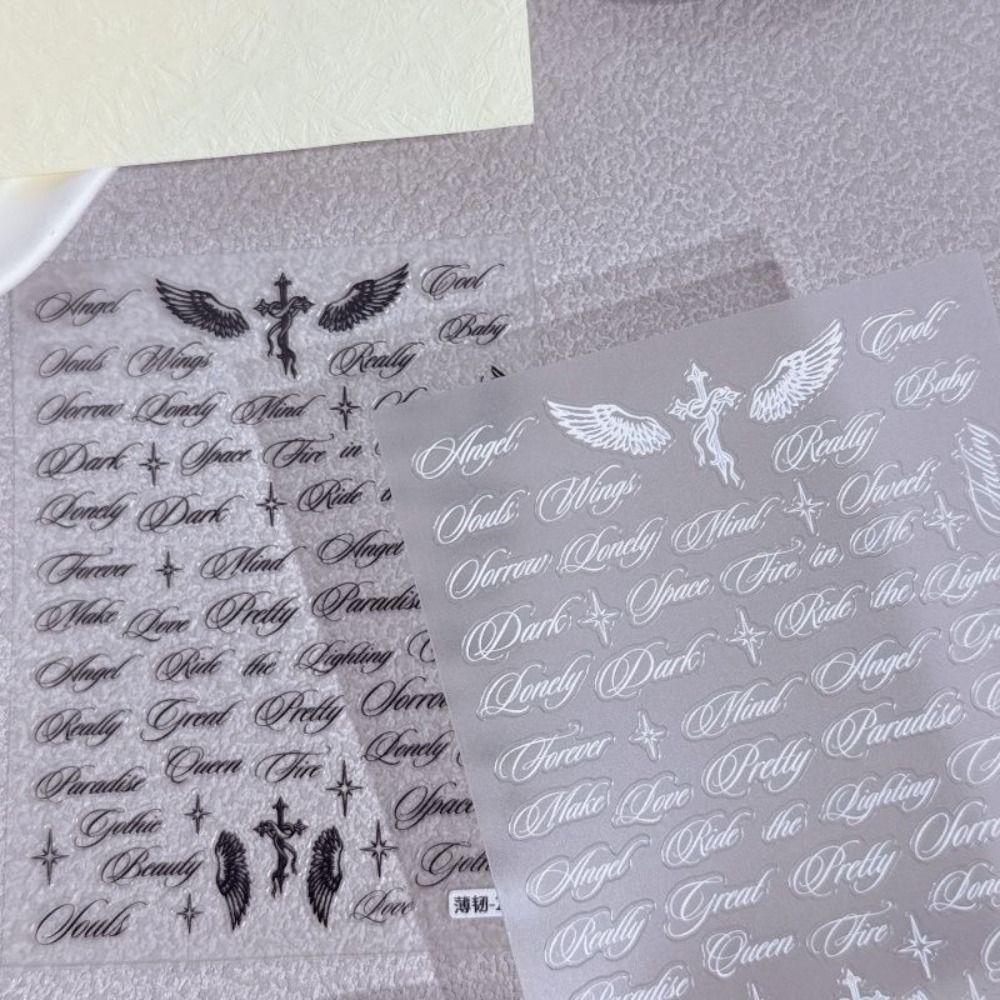 Angel Cool
Baby
Souls Wings Really
Sorrow Lonely Mind
Dark Space Fire in
Lonely Dark Ride
Forever Mind Angel
Make Love Pretty Paradise
Angel Ride the Lighting
Really Great Pretty Sorrow
Paradise Queen Fire Lonely
Gothic Space
Beauty Gothic
Souls Love
薄韧-
Cool
Baby
Angel Really
Souls Wings Sweet
Sorrow Lonely Mind
Dark Space Fire in Me
Lonely Dark Ride the
Forever Mind Angel
Make Love Pretty Paradise
Angel Ride the Lighting
Really Great Pretty Sorrow
Paradise Queen Fire